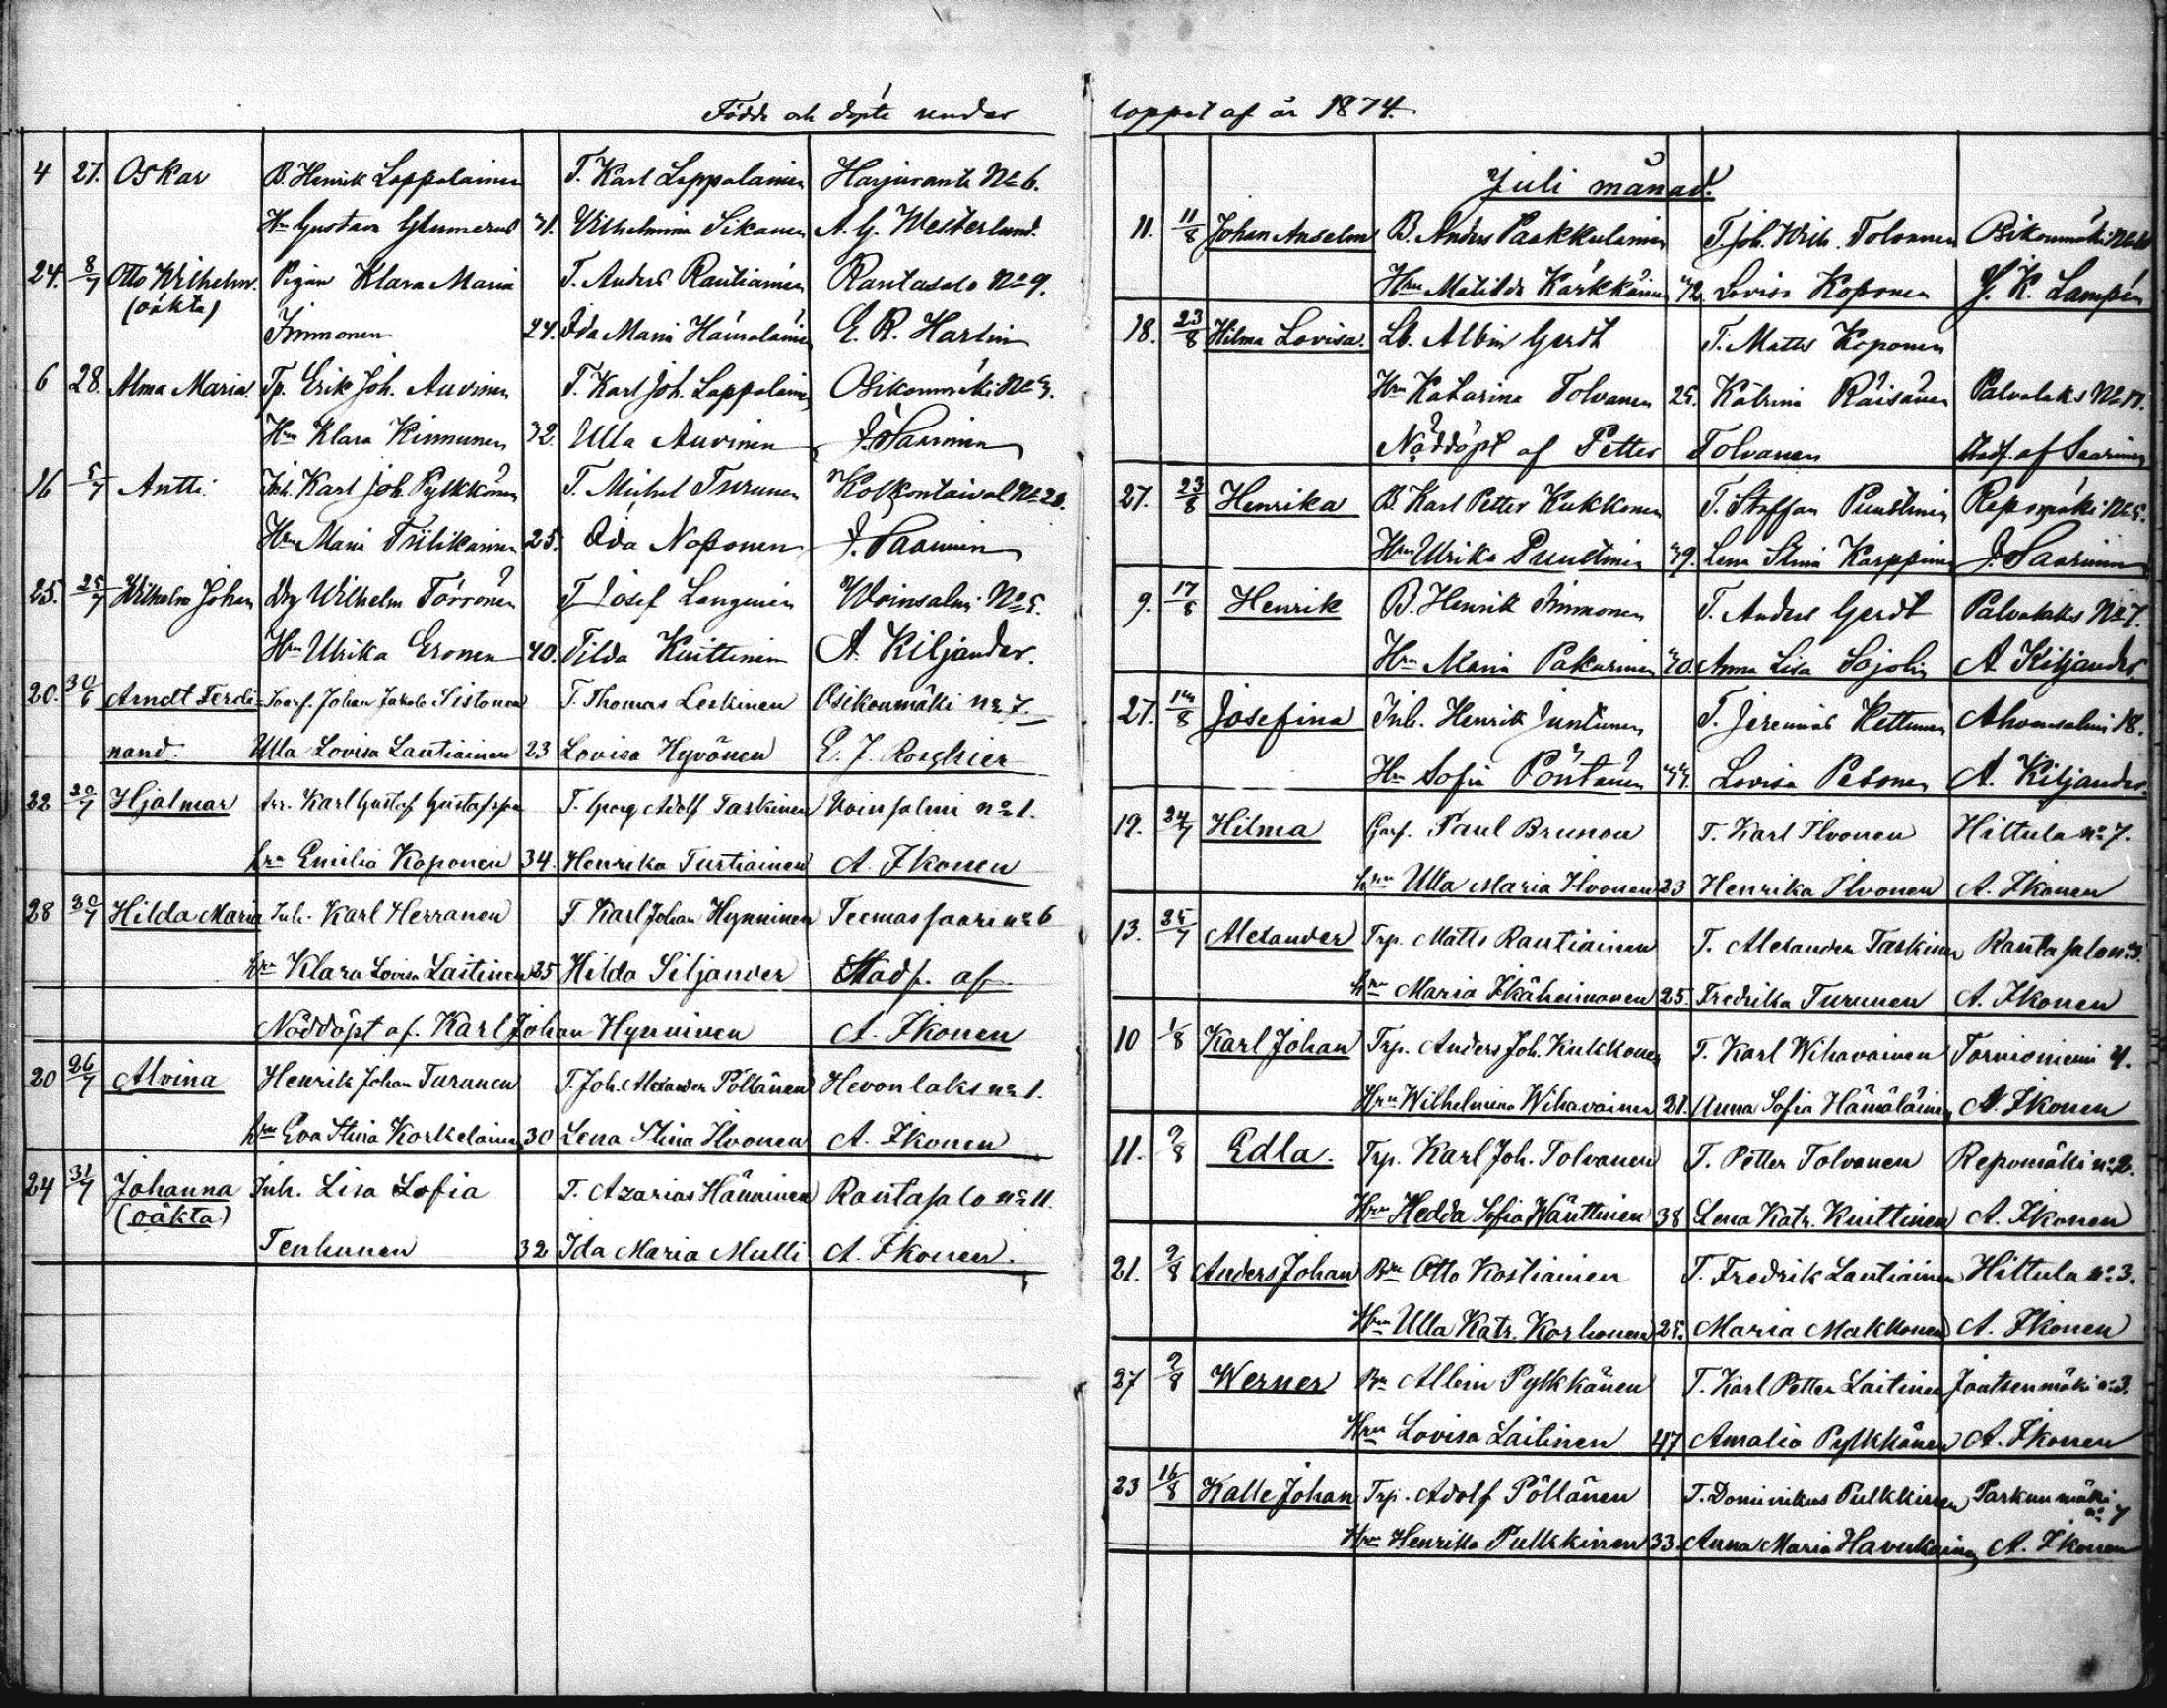 Födde och döpte under
4 27. Oskar B. Henrik Loppolainen T. Karl Loppolainen Harjuranta No 6.
Hu Gustava Glumerus 41. Vilhelmina Sikanen A. G. Westerlund.
24. 8/7 Otto Wilhelm. Pigan Klara Maria T. Anders Rautiainen Rantasalo No 9.
(oäkta)
Immonen 24. Ida Maria Hämäläinen E. R. Harlin
6 28. Alma Maria. Tp. Erik Joh. Auvinen T. Karl Joh. Loppolainen Osikonmäki No 3.
Hu Klara Kinnunen 32. Ulla Auvinen J. Saarinen
16 5/7 Antti Inh. Karl Joh. Pylkkönen T. Michel Turunen Kolkontaival No 20.
Hru Maria Tiilikainen 25. Ida Noponen J. Saarinen
25. 25/7 Wilhelm Johan Drg Wilhelm Törrönen T. Josef Longinen Woinsalmi No 5.
Hu Ulrika Eronen 40. Tilda Kuittinen A. Kiljander.
20. 30/6 Arndt Ferdi- Johan Jakob Sistonen T. Thomas Leskinen Osikonmäki no 7.
nand. Ulla Lovisa Lautiainen 23 Lovisa Hyvönen E. J. Roschier
22 20/7 Hjalmar Arr. Karl Gustaf Gustafsson T. Georg Adolf Taskinen Voinsalmi no 1.
hru Emilia Koponen 34. Henrika Turtiainen A. Ikonen
28 30/7 Hilda Maria Inh. Karl Herranen T Karl Johan Hynninen Teemassaari no 6
hru Klara Lovisa Laitinen 25 Hilda Siljander Stadf. af
Nöddöpt af. Karl Johan Hynninen A. Ikonen
20 26/7 Alvina Henrik Johan Turunen T. Joh. Alexander Pöllänen Hevonlaks no 1.
hru Eva Stina Korkelainen 30 Lena Stina Ilvonen A. Ikonen
24 31/7 Johanna Inh. Lisa Sofia T. Azarias Hänninen Rantasalo no 11.
(oäkta)
Tenhunen 32 Ida Maria Multi A. Ikonen.
loppet af år 1874.
Juli månad.
11. 11/8 Johan Anselm B. Anders Paakkulainen T. Joh. Wilh. Tolvanen Osikonmäki
Hru Matilda Kärkkäinen 42. Lovisa Koponen J. K. Lampén
18. 23/8 Hilma Lovisa. Lb. Albin Gerdt T. Matts Koponen
Hru Katarina Tolvanen 25. Katrina Räisänen Palvalaks No 17.
Nöddöpt af Petter Tolvanen Stadf. af Saarinen
27. 23/8 Henrika B. Karl Petter Kukkonen T. Staffan Puustinen Repomäki No 5.
Hru Ulrika Puustinen 39. Lena Stina Karppinen J. Saarinen
9. 17/8 Henrik B. Henrik Immonen T. Anders Gerdt Palvalaks No 7.
Hru Maria Pakarinen 40. Anna Lisa Sojolin A. Kiljander
27. 14/8 Josefina Inh. Henrik Juntunen T. Jeremias Kettunen Ahvensalmi 18.
Hu Sofia Pöntänen 44. Lovisa Pesonen A. Kiljander.
19. 24/7 Hilma Paul Brunou T. Karl Ilvonen Hiltula no 7.
hru Ulla Maria Ilvonen 23 Henrika Ilvonen A. Ikonen
13. 25/7 Alexander Trp. Matts Rautiainen T. Alexander Taskinen Rantasalo no 3.
hru Maria Ikäheimonen 25. Fredrika Turunen A. Ikonen
10 1/8 Karl Johan Trp. Anders Joh. Kukkonen T. Karl Wihavainen Tornioniemi 4.
Hru Wilhelmina Wihavainen 21. Anna Sofia Hämäläinen A. Ikonen
11. 9/8 Edla. Trp. Karl Joh. Tolvanen T. Petter Tolvanen Repomäki no 2.
Hru Hedda Sofia Wänttinen 38 Lena Katr. Kuittinen A. Ikonen
21. 9/8 Anders Johan Bn Otto Kostiainen T. Fredrik Lautiainen Hiltula no 3.
Hru Ulla Katr. Korhonen 25. Maria Makkonen A. Ikonen
27 9/8 Werner Bn Albin Pylkkänen T. Karl Petter Laitinen Joutsenmäki no 3.
Hru Lovisa Laitinen 47 Amalia Pylkkänen A. Ikonen
23 16/8 Kalle Johan Trp. Adolf Pöllänen T. Dominikus Pulkkinen Parkunmäki no 7
Hru Henrika Pulkkinen 33. Anna Maria Havukainen A. Ikonen